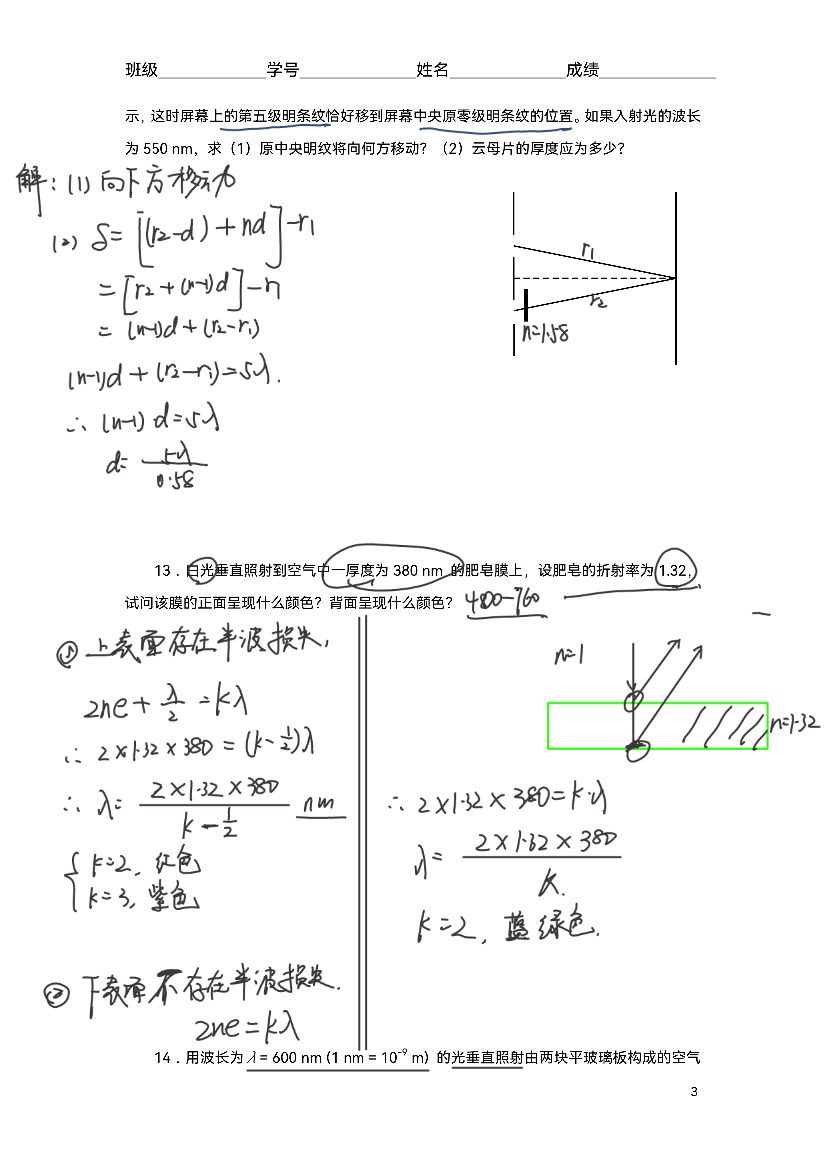 班级 学号 姓名 成绩
示，这时屏幕上的第五级明条纹恰好移到屏幕中央原零级明条纹的位置。如果入射光的波长
为 550 nm，求（1）原中央明纹将向何方移动？（2）云母片的厚度应为多少？
解：(1) 向下方移动
(2) δ=[(r2-d)+nd]-r1
=[r2+(n-1)d]-r1
=(n-1)d+(r2-r1)
(n-1)d+(r2-r1)=5λ.
∴ (n-1)d=5λ
d= 5λ
0.58
r1
r2
n=1.58
13．白光垂直照射到空气中一厚度为 380 nm 的肥皂膜上，设肥皂的折射率为 1.32，
试问该膜的正面呈现什么颜色？背面呈现什么颜色？ 400-760
(1) 上表面存在半波损失，
2ne+λ/2=kλ
∴ 2×1.32×380=(k-1/2)λ
∴ λ= 2×1.32×380 nm
k-1/2
k=2, 红色
k=3, 紫色
n=1
n=1.32
∴ 2×1.32×380=k·λ
λ= 2×1.32×380
k.
k=2, 蓝绿色.
(2) 下表面不存在半波损失.
2ne=kλ
14．用波长为 λ = 600 nm (1 nm = 10⁻⁹ m) 的光垂直照射由两块平玻璃板构成的空气
3